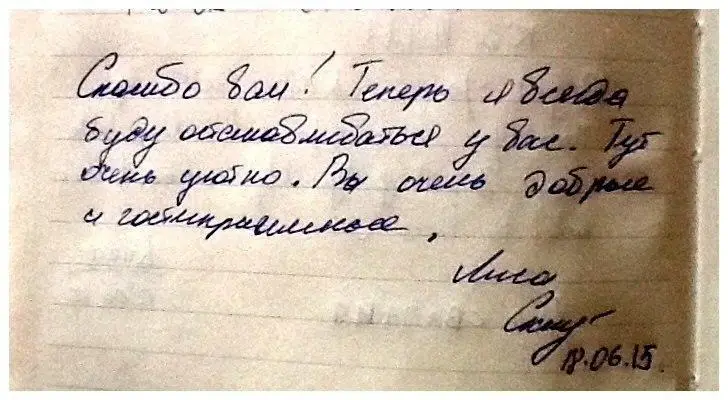 Спасибо вам! Теперь я всегда
буду останавливаться у вас. Тут
очень уютно. Вы очень добрые
и гостиприимные,
Лиса
18.06.15.